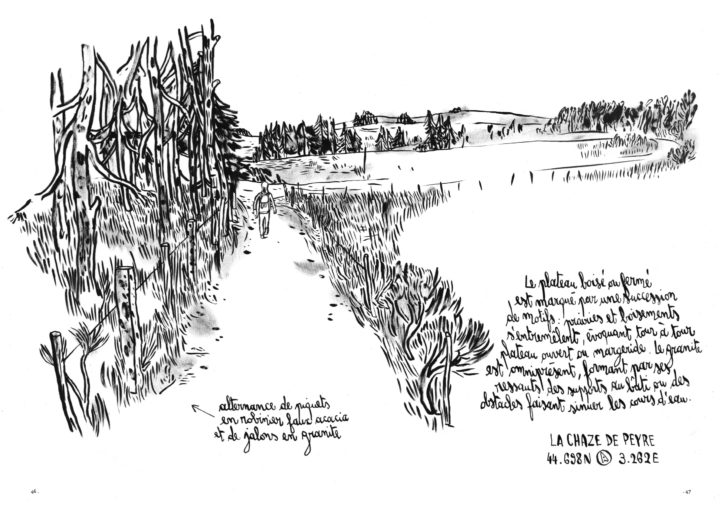 Le plateau boisé ou fermé
est marqué par une succession
de motifs : prairies et boisements
s'entremêlent, évoquant tour à tour
plateau ouvert ou margeride. le granite
est omniprésent, formant par ses
ressauts des supports au bâti ou des
obstacles faisant sinuer les cours d'eau.
alternance de piquets
en robinier faux acacia
et de jalons en granite
LA CHAZE DE PEYRE
44.698N A 3.262E
46.
.47